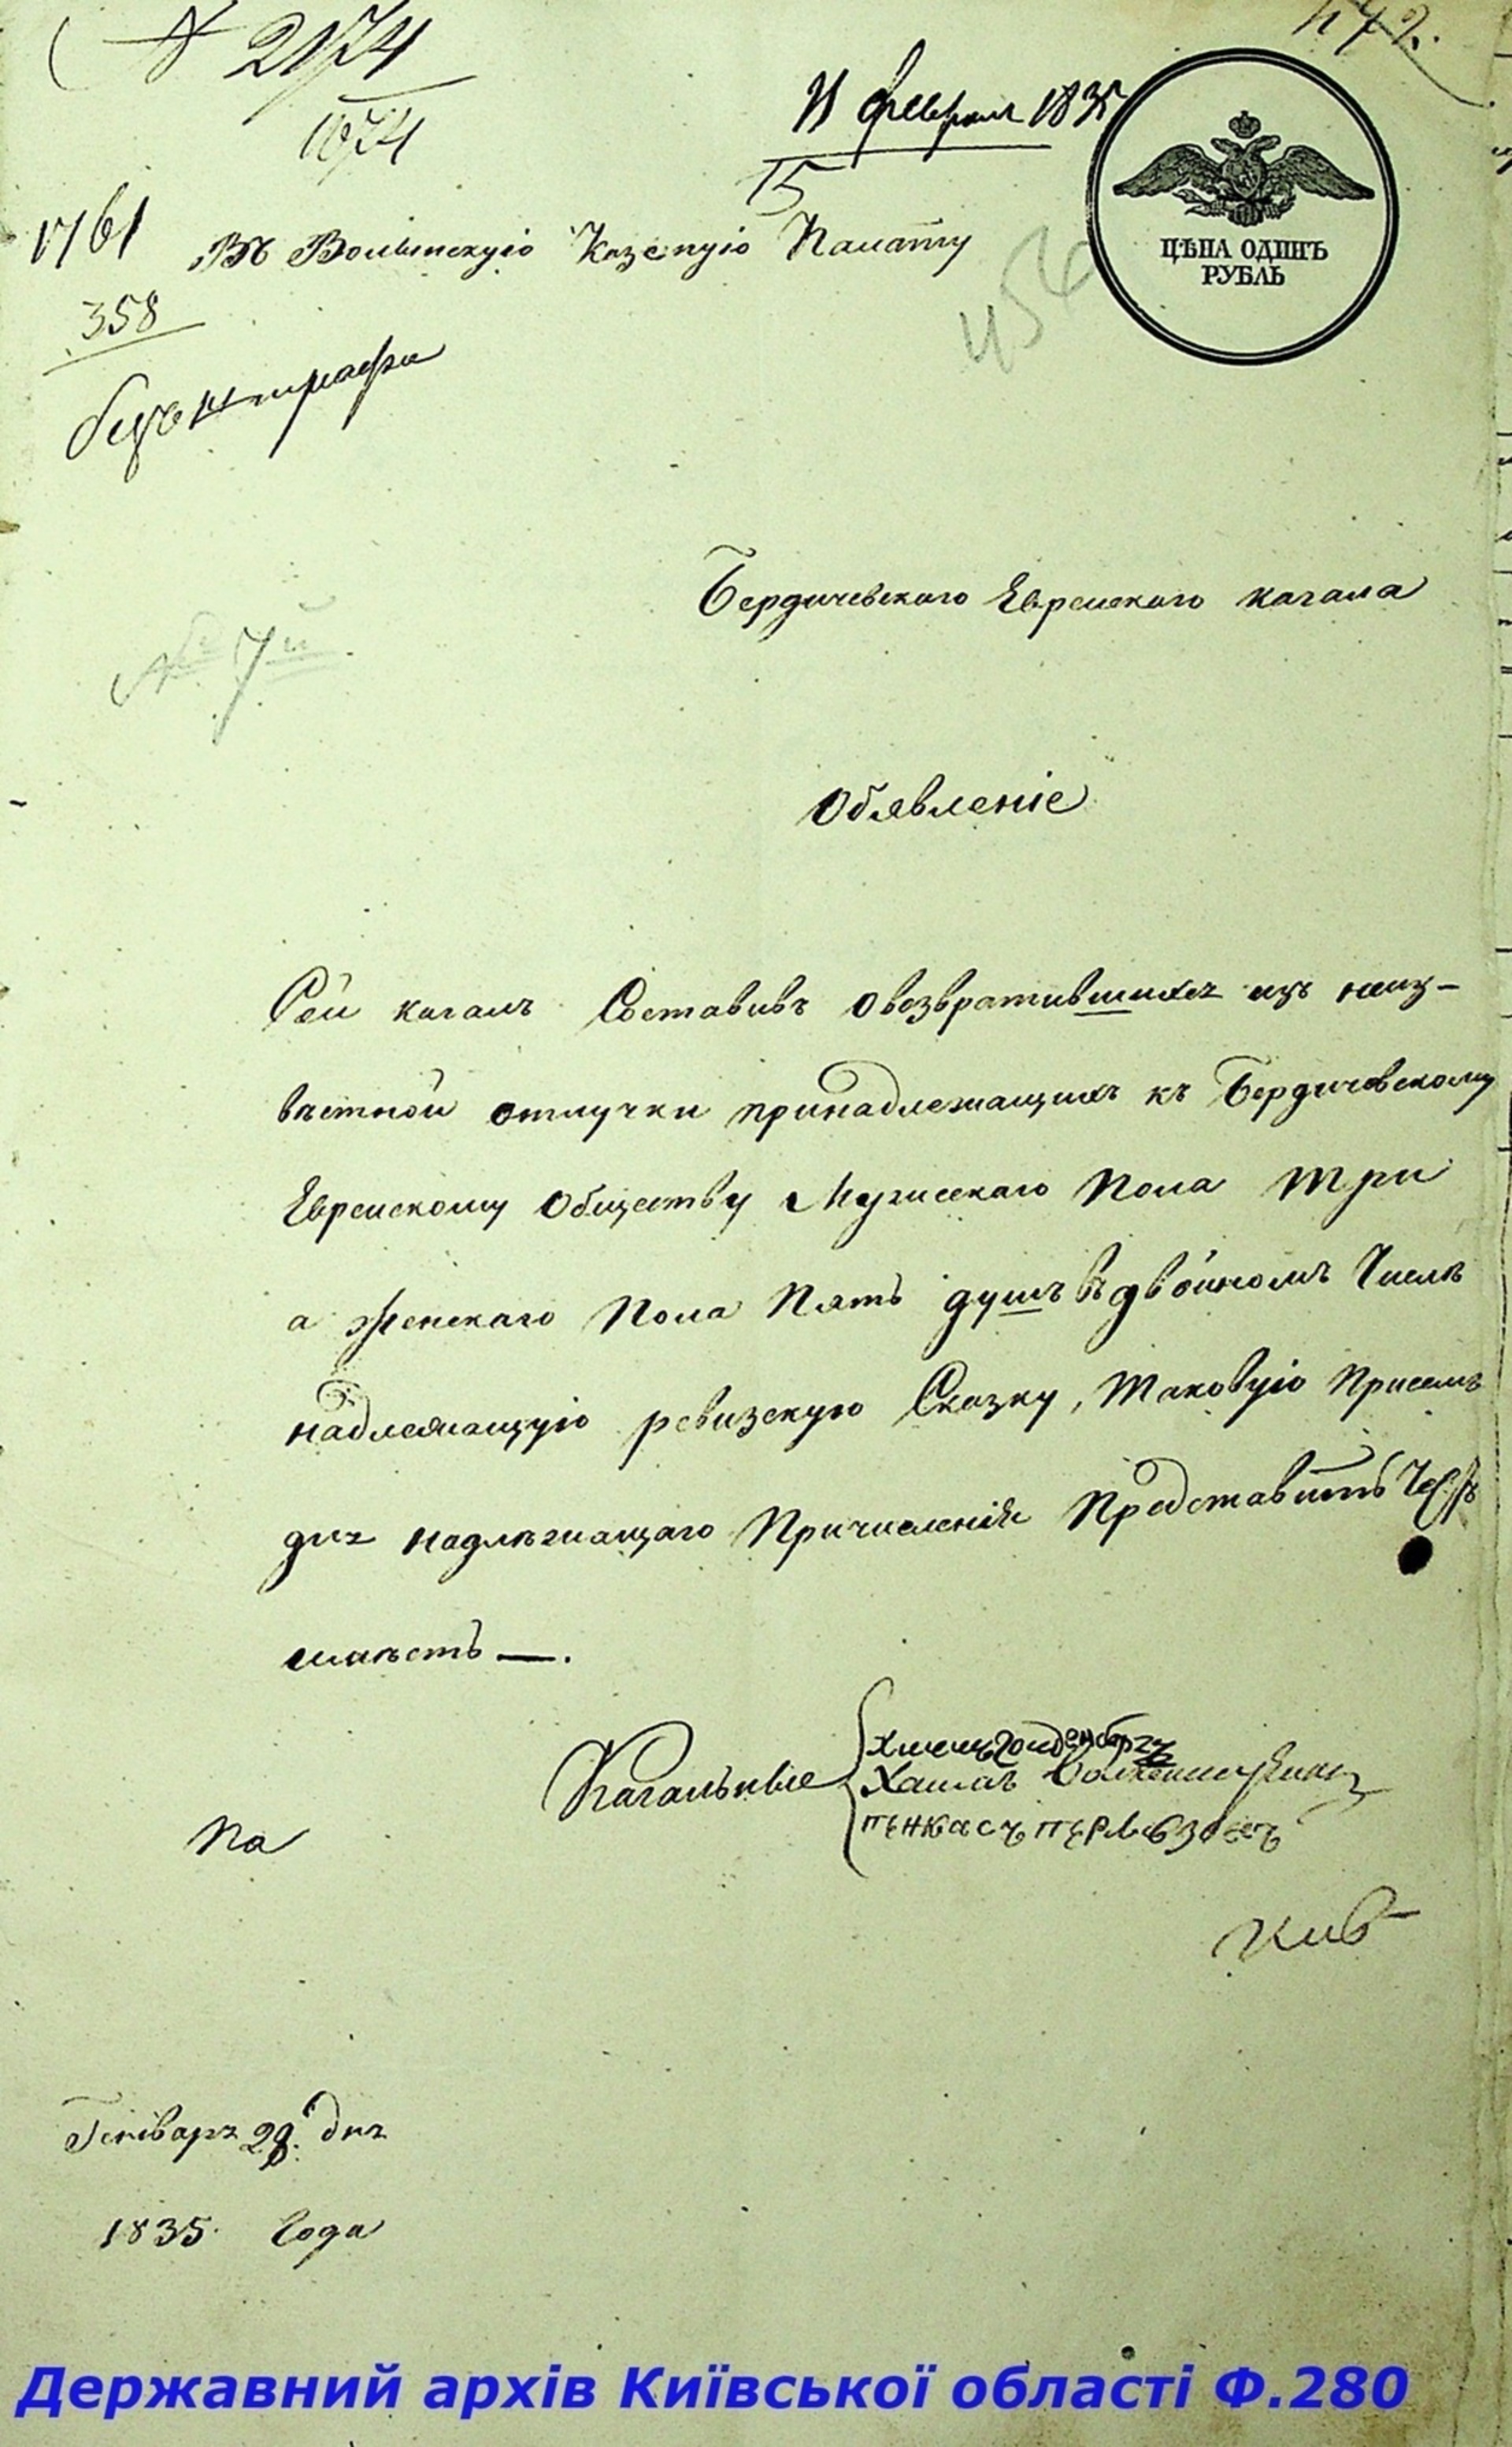 № 2174
1674
472.
11 февраля 1835
15
ЦѢНА ОДИНЪ
РУБЛЬ
1761
Въ Волынскую Казенную Палату
358
безъ штрафа
Бердичевского Еврейского кагала
№ 7й.
Обявленіе
Сей кагалъ Составивъ о возвратившихся изъ неиз-
вѣстной отлучки принадлежащихъ къ Бердичевскому
Еврейскому Обществу Мужескаго Пола Три
а Женскаго Пола Пять душъ въ двойномъ Числѣ
надлежащую ревизскую Сказку, Таковую Присемъ
для надлежащаго Причисленія Представить Честь
имѣетъ —.
Кагальные
Хаимъ
пѣнкасъ
На
Генваря 29. дня
1835. Года
Державний архів Київської області Ф.280